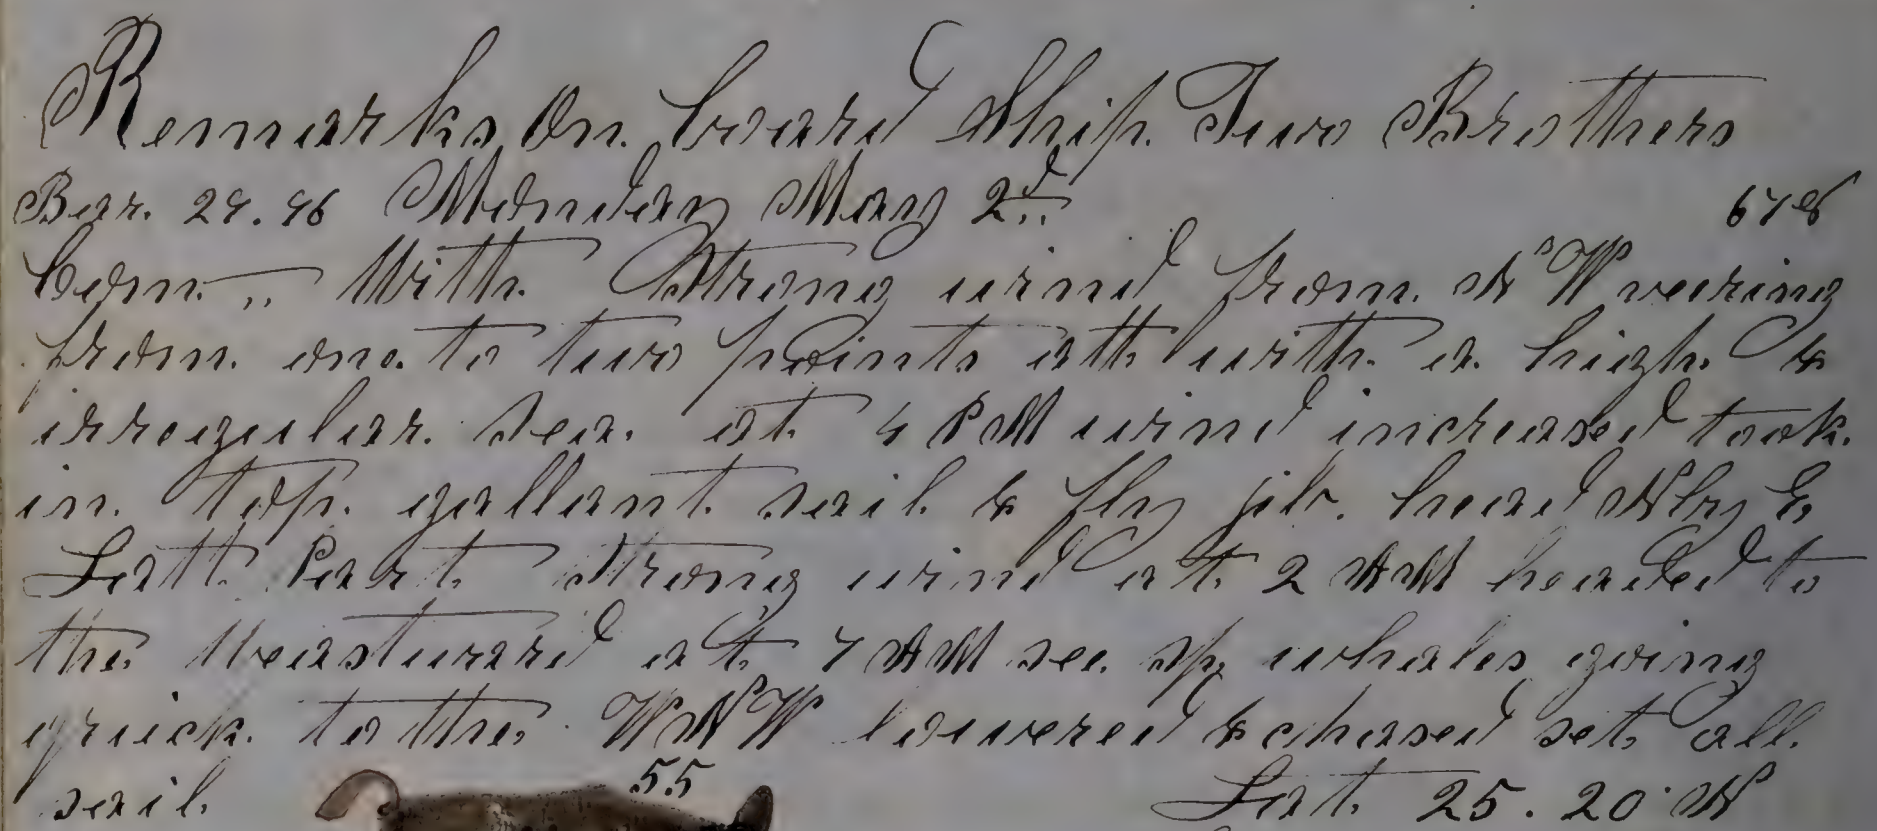 Remarks On board Ship Two Brothers
Bar. 29.96 Monday May 2d 67°
Com. „ With Strong wind from NW veering
from one to two points att with a high &
irregular sea. at 4 PM wind increased took
in top gallant sail & fly jib. head N by E,
Latt Part Strong wind at 2 AM headed to
the Weastward at 7 AM see sp whales going
quick to the WNW lowered & chased set all
sail 55 Lat 25.20 N